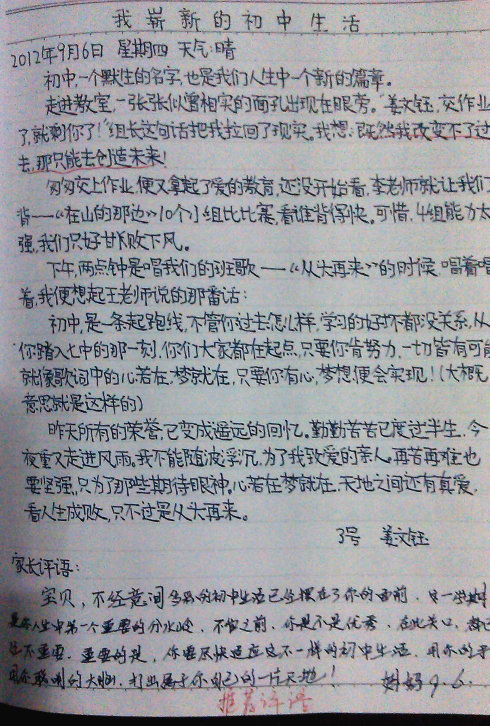 我崭新的初中生活
2012年9月6日 星期四 天气:晴
初中,一个默生的名字,也是我们人生中一个新的篇章。
走进教室,一张张似曾相实的面孔出现在眼旁。"姜文钰,交作业
了,就剩你了!"组长这句话把我拉回了现实。我想:既然我改变不了过
去,那只能去创造未来!
匆匆交上作业,便又拿起了爱的教育,还没开始看,李老师就让我们
背——"在山的那边"10个小组比比赛,看谁背得快。可惜,4组能力太
强,我们只好甘败下风。
下午,两点钟是唱我们的班歌——《从头再来》的时候,唱着唱
着,我便想起王老师说的那番话:
初中,是一条起跑线,不管你过去怎么样,学习的好坏都没关系,从
你踏入七中的那一刻,你们大家都在起点,只要你肯努力,一切皆有可能
就像歌词中的心若在,梦就在,只要你有心,梦想便会实现!(大概
意思就是这样的)
昨天所有的荣誉,已变成遥远的回忆。勤勤苦苦已度过半生,今
夜重又走进风雨。我不能随波浮沉,为了我致爱的亲人。再苦再难也
要坚强,只为了那些期待眼神。心若在梦就在,天地之间还有真爱,
看人生成败,只不过是从头再来。
3号 姜文钰
家长评语:
宝贝,不经意间多彩的初中生活已经摆在了你的面前,
是你人生中第一个重要的分水岭,不管之前,你是不是优秀,在此关口,都已
经不重要,重要的是,你要尽快适应这不一样的初中生活,用你的
用你聪明的大脑,打出属于你自己的一片天地! 妈妈 9.6.
推荐评语